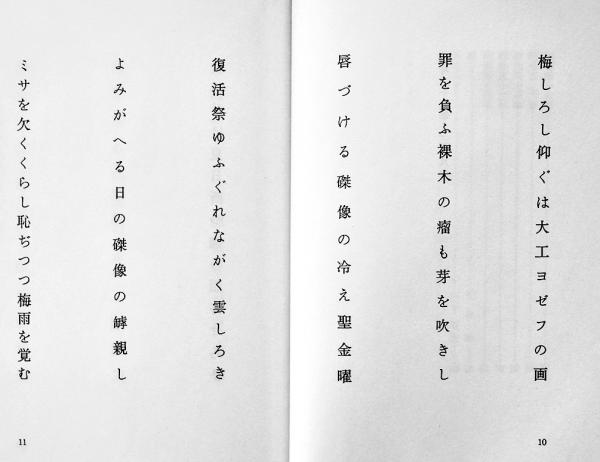 梅しろし仰ぐは大工ヨゼフの画
罪を負ふ裸木の瘤も芽を吹きし
唇づける磔像の冷え聖金曜
10
復活祭ゆふぐれながく雲しろき
よみがへる日の磔像の罅親し
ミサを欠くくらし恥ぢつつ梅雨を覚む
11